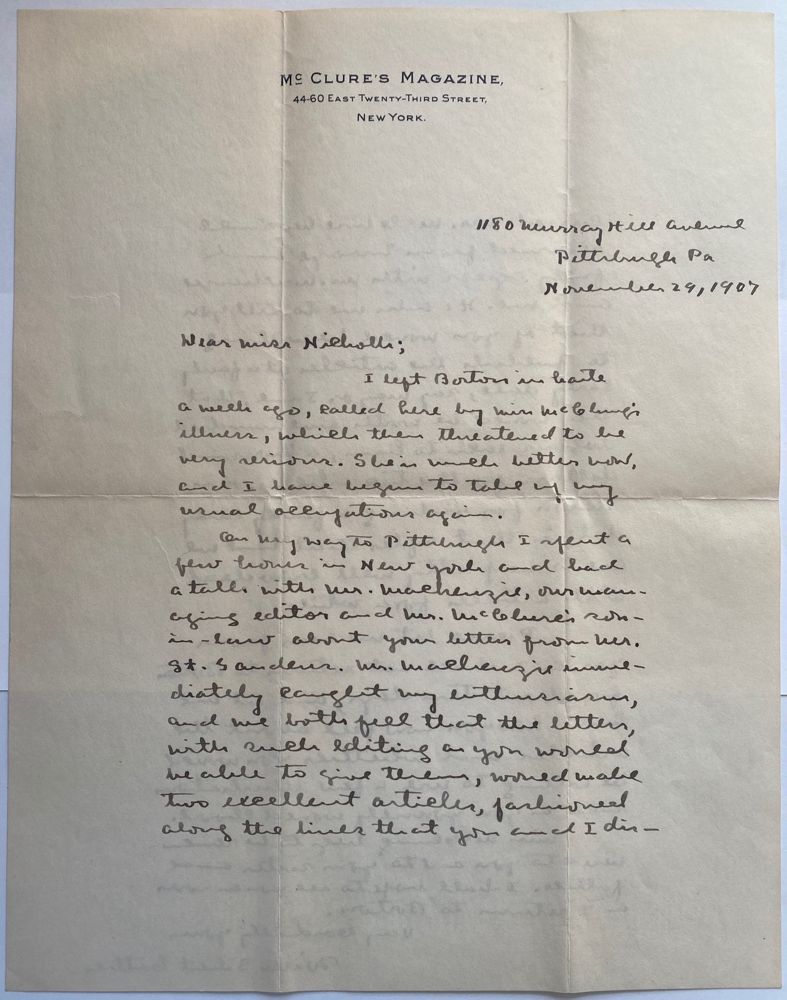 Mc Clure's Magazine,
44-60 East Twenty-Third Street,
New York.
1180 Murray Hill Avenue
Pittsburgh Pa
November 29, 1907
Dear Miss Nichols;
I left Boston in haste
a week ago, called here by Miss McClung's
illness, which then threatened to be
very serious. She is much better now,
and I have begun to take up my
usual occupations again.
On my way to Pittsburgh I spent a
few hours in New York and had
a talk with Mr. Mackenzie, our man-
aging editor and Mr. McClure's son-
in-law about your letters from Mr.
St. Gaudens. Mr. Mackenzie imme-
diately caught my enthusiasm,
and we both feel that the letters,
with such editing as you would
be able to give them, would make
two excellent articles, fashioned
along the lines that you and I dis-